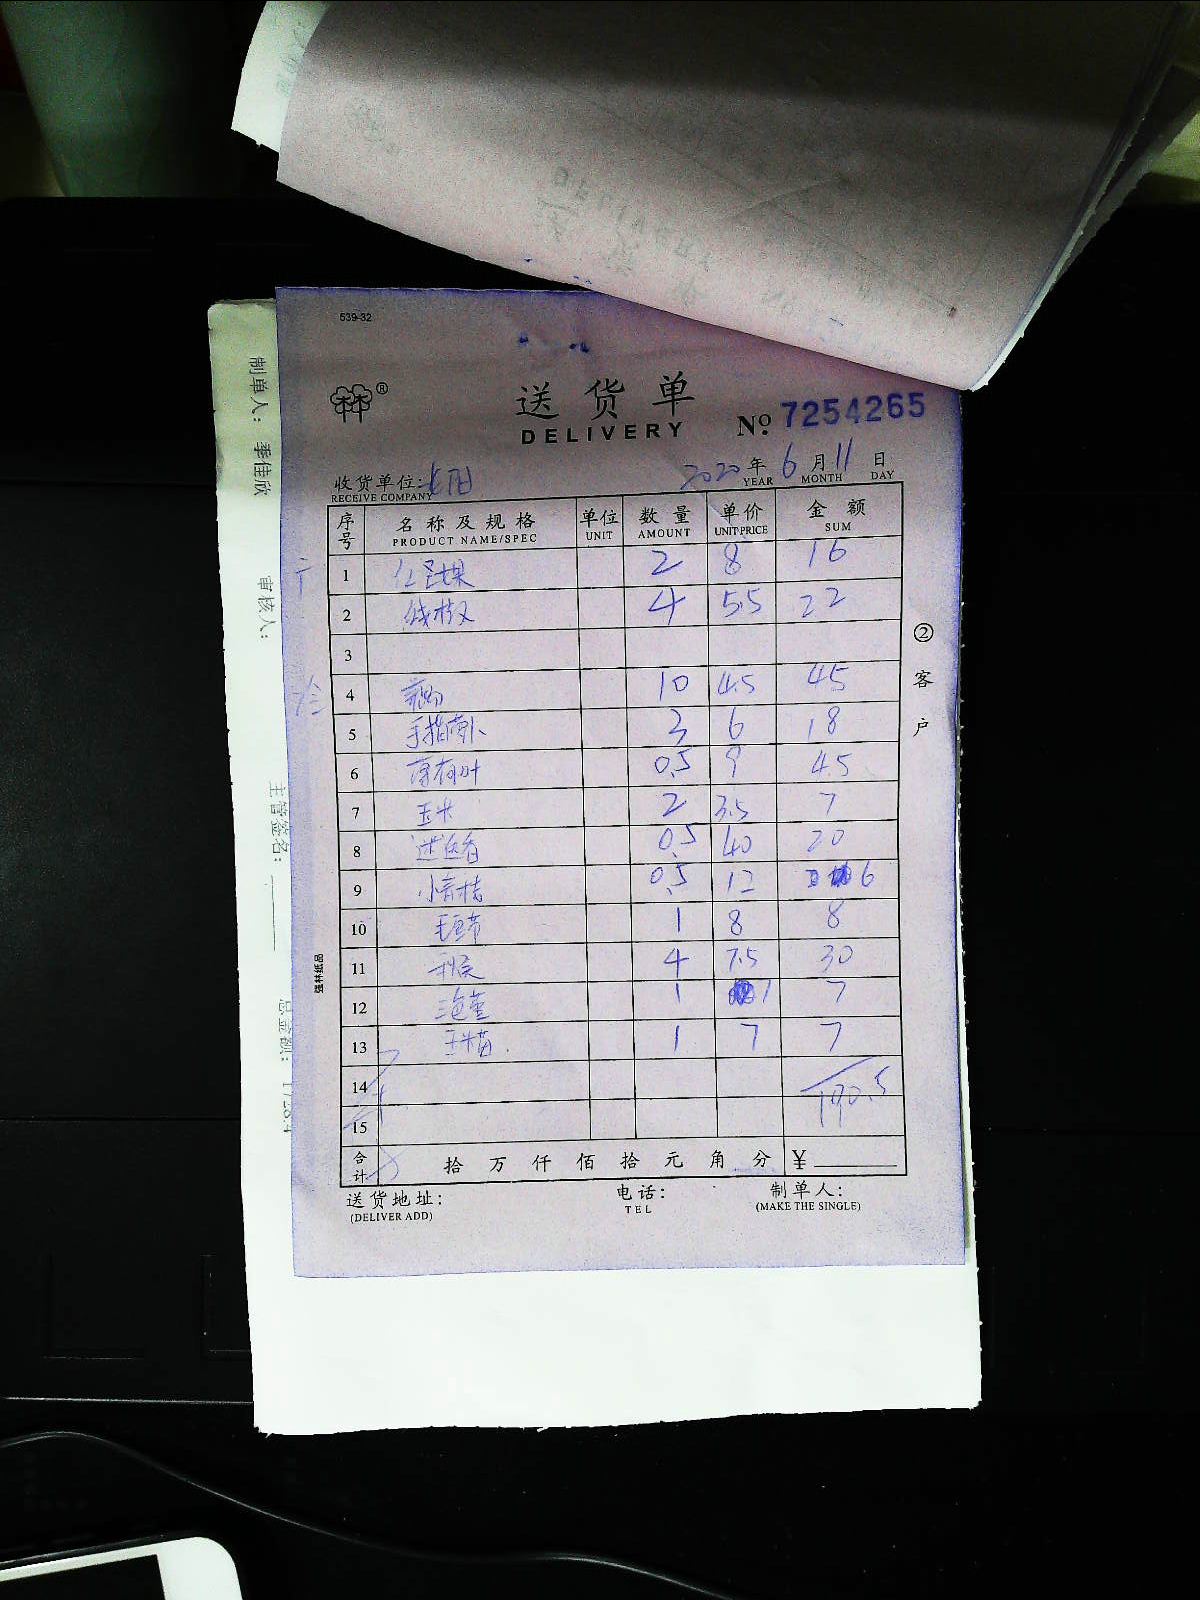 539-32
® 送货单
DELIVERY
No. 7254265
收货单位:
RECEIVE COMPANY
2020年 6月 11日
YEAR MONTH DAY
序号 名称及规格 单位 数量 单价 金额
PRODUCT NAME/SPEC UNIT AMOUNT UNIT·PRICE SUM
1 2 8 16
2 线椒 4 5.5 22
3
4 10 4.5 45
5 手指萝卜 3 6 18
6 薄荷叶 0.5 9 4.5
7 玉米 2 3.5 7
8 迷迭香 0.5 40 20
9 小青桔 0.5 12 6
10 毛豆节 1 8 8
11 4 7.5 30
12 三色堇 1 7
13 玉米苗 1 7 7
14
15
190.5
合计 拾 万 仟 佰 拾 元 角 分 ¥
送货地址: 电话: 制单人:
(DELIVER ADD) TEL (MAKE THE SINGLE)
② 客户
强林纸品
制单人: 季佳欣
审核人:
主管签名:
总金额: